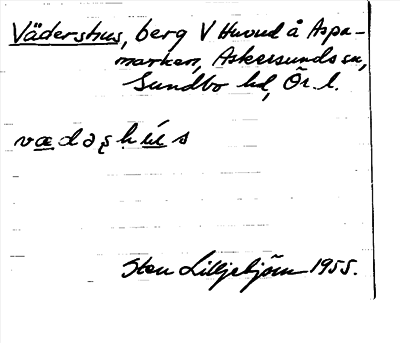 Vädershus, berg V Huvud å Aspa-
marken, Askersunds sn,
Sundbo hd, Ör. l.
vædəşhʉs
Sten Lilljebjörn 1955.